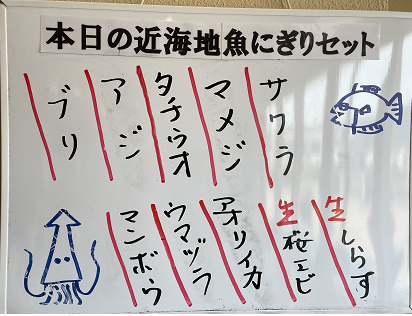 本日の近海地魚にぎりセット
サワラ
マメジ
タチウオ
アジ
ブリ
生しらす
生桜エビ
アオリイカ
ウマヅラ
マンボウ